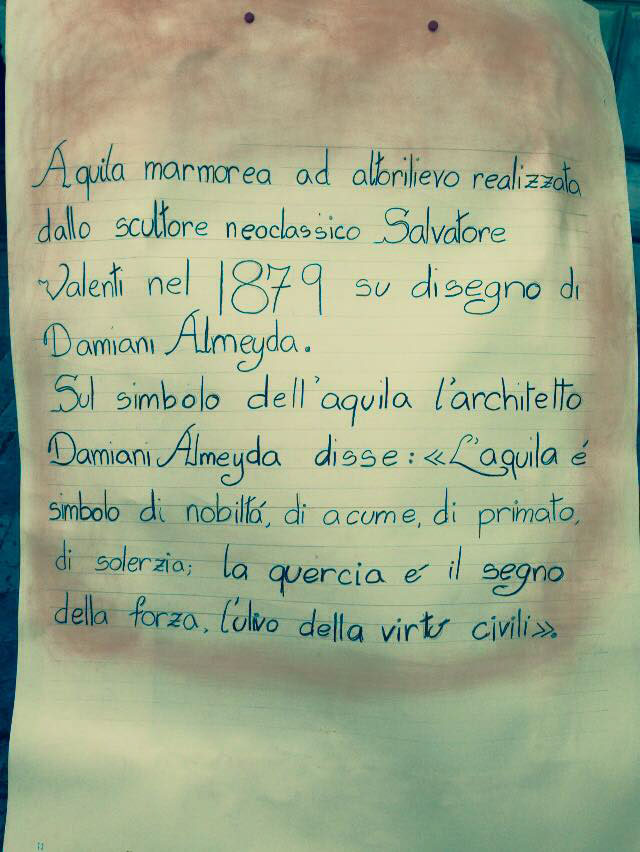 Aquila marmorea ad altorilievo realizzata
dallo scultore neoclassico Salvatore
Valenti nel 1879 su disegno di
Damiani Álmeyda.
Sul simbolo dell'aquila l'architetto
Damiani Álmeyda disse: «L'aquila é
simbolo di nobiltá, di acume, di primato,
di solerzia; la quercia é il segno
della forza, l'ulivo della virtù civili».